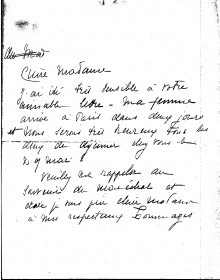 Chère Madame
J'ai été très sensible à votre
aimable lettre - Ma femme
arrive à Paris dans deux jours
et nous serons très heureux tous les
deux de déjeuner chez vous le
9 mai
Veuillez me rappeler au
souvenir du Maréchal et
je vous prie chère Madame
à mes respectueux hommages